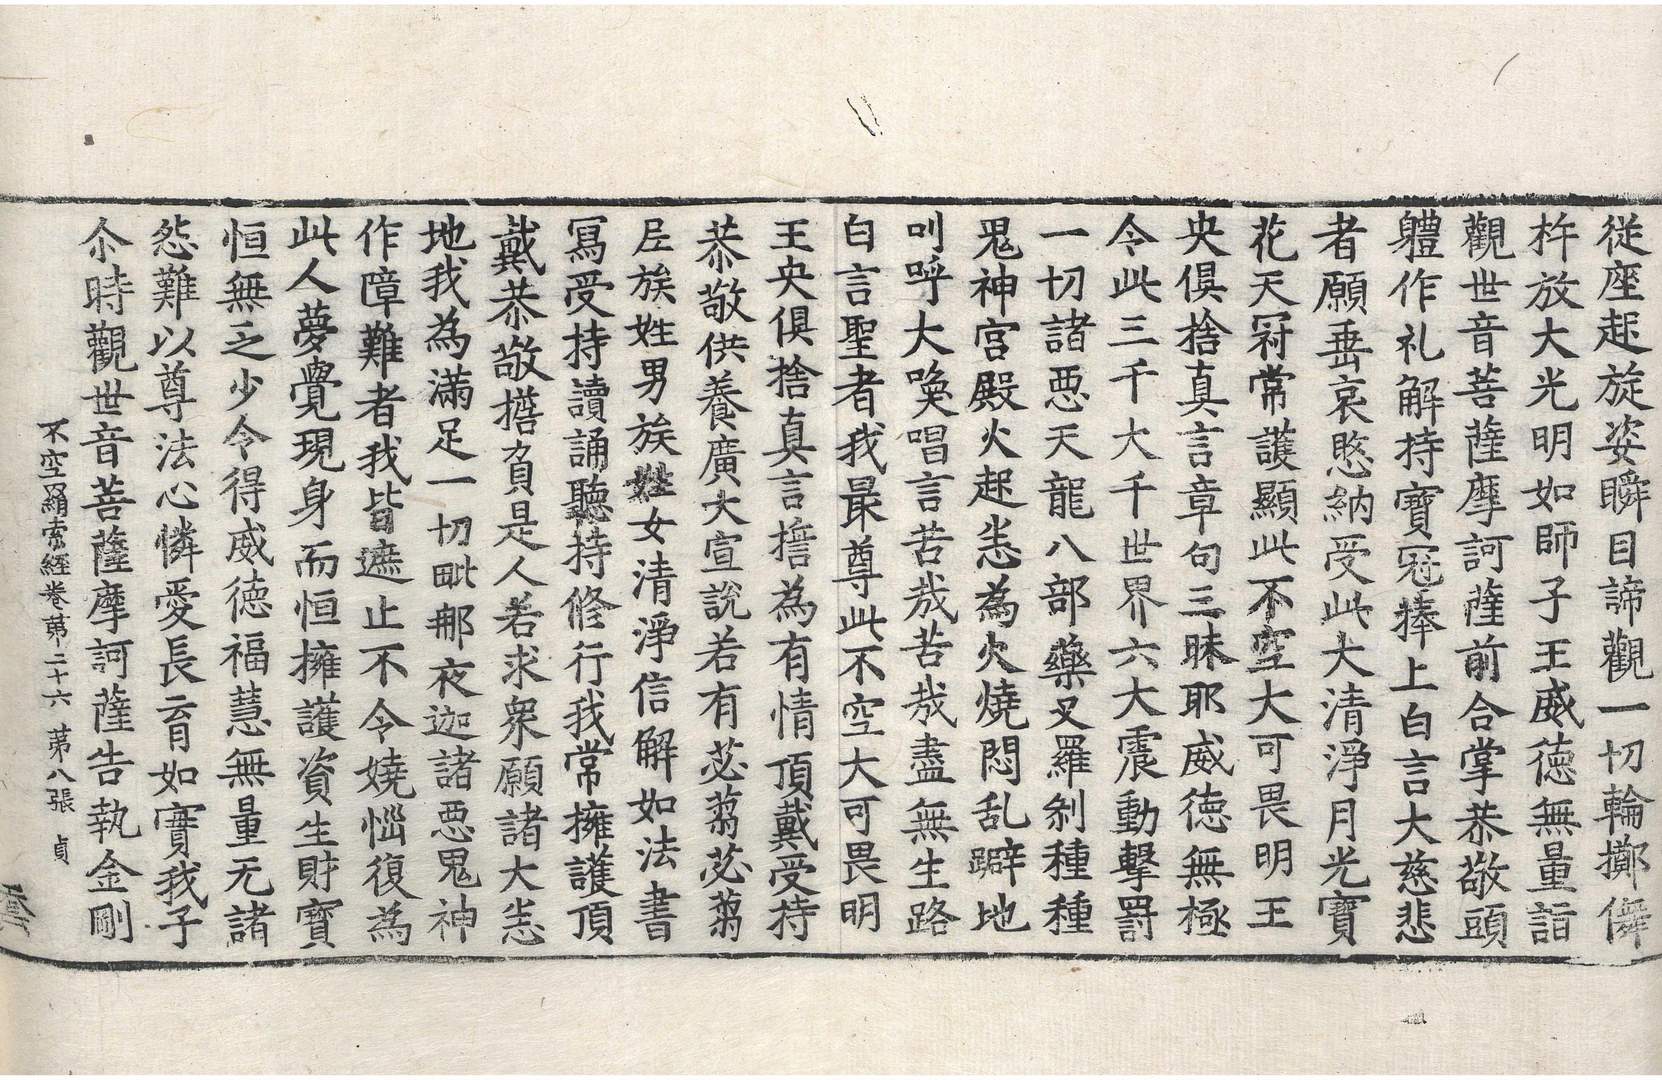 従座起旋姿瞬目諦觀一切輪擲儛
杵放大光明如師子王威徳無量詣
觀世音菩薩摩訶薩前合掌恭敬頭
軆作礼解持寳冠捧上白言大慈悲
者願垂哀愍納受此大清淨月光寳
花天冠常護顯此不空大可畏明王
央俱捨真言章句三昧耶威徳無極
令此三千大千世界六大震動擊罸
一切諸惡天龍八部藥叉羅剎種種
鬼神宮殿火起恙為火燒悶乱躃地
叫呼大喚唱言苦哉苦哉盡無生路
白言聖者我最尊此不空大可畏明
王央俱捨真言擔為有情頂戴受持
恭敬供養廣大宣說若有苾蒭苾蒭
尼族姓男族姓女清淨信解如法書
寫受持讀誦聽持修行我常擁護頂
戴恭敬擔負是人若求衆願諸大恙
地我為滿足一切毗那夜迦諸惡鬼神
作障難者我皆遮止不令嬈惱復為
此人夢覺現身而恒擁護資生財寳
恒無乏少令得威徳福慧無量无諸
怨難以尊法心憐愛長育如實我子
尒時觀世音菩薩摩訶薩告執金剛
不空羂索經卷苐二十六 苐八張 貞